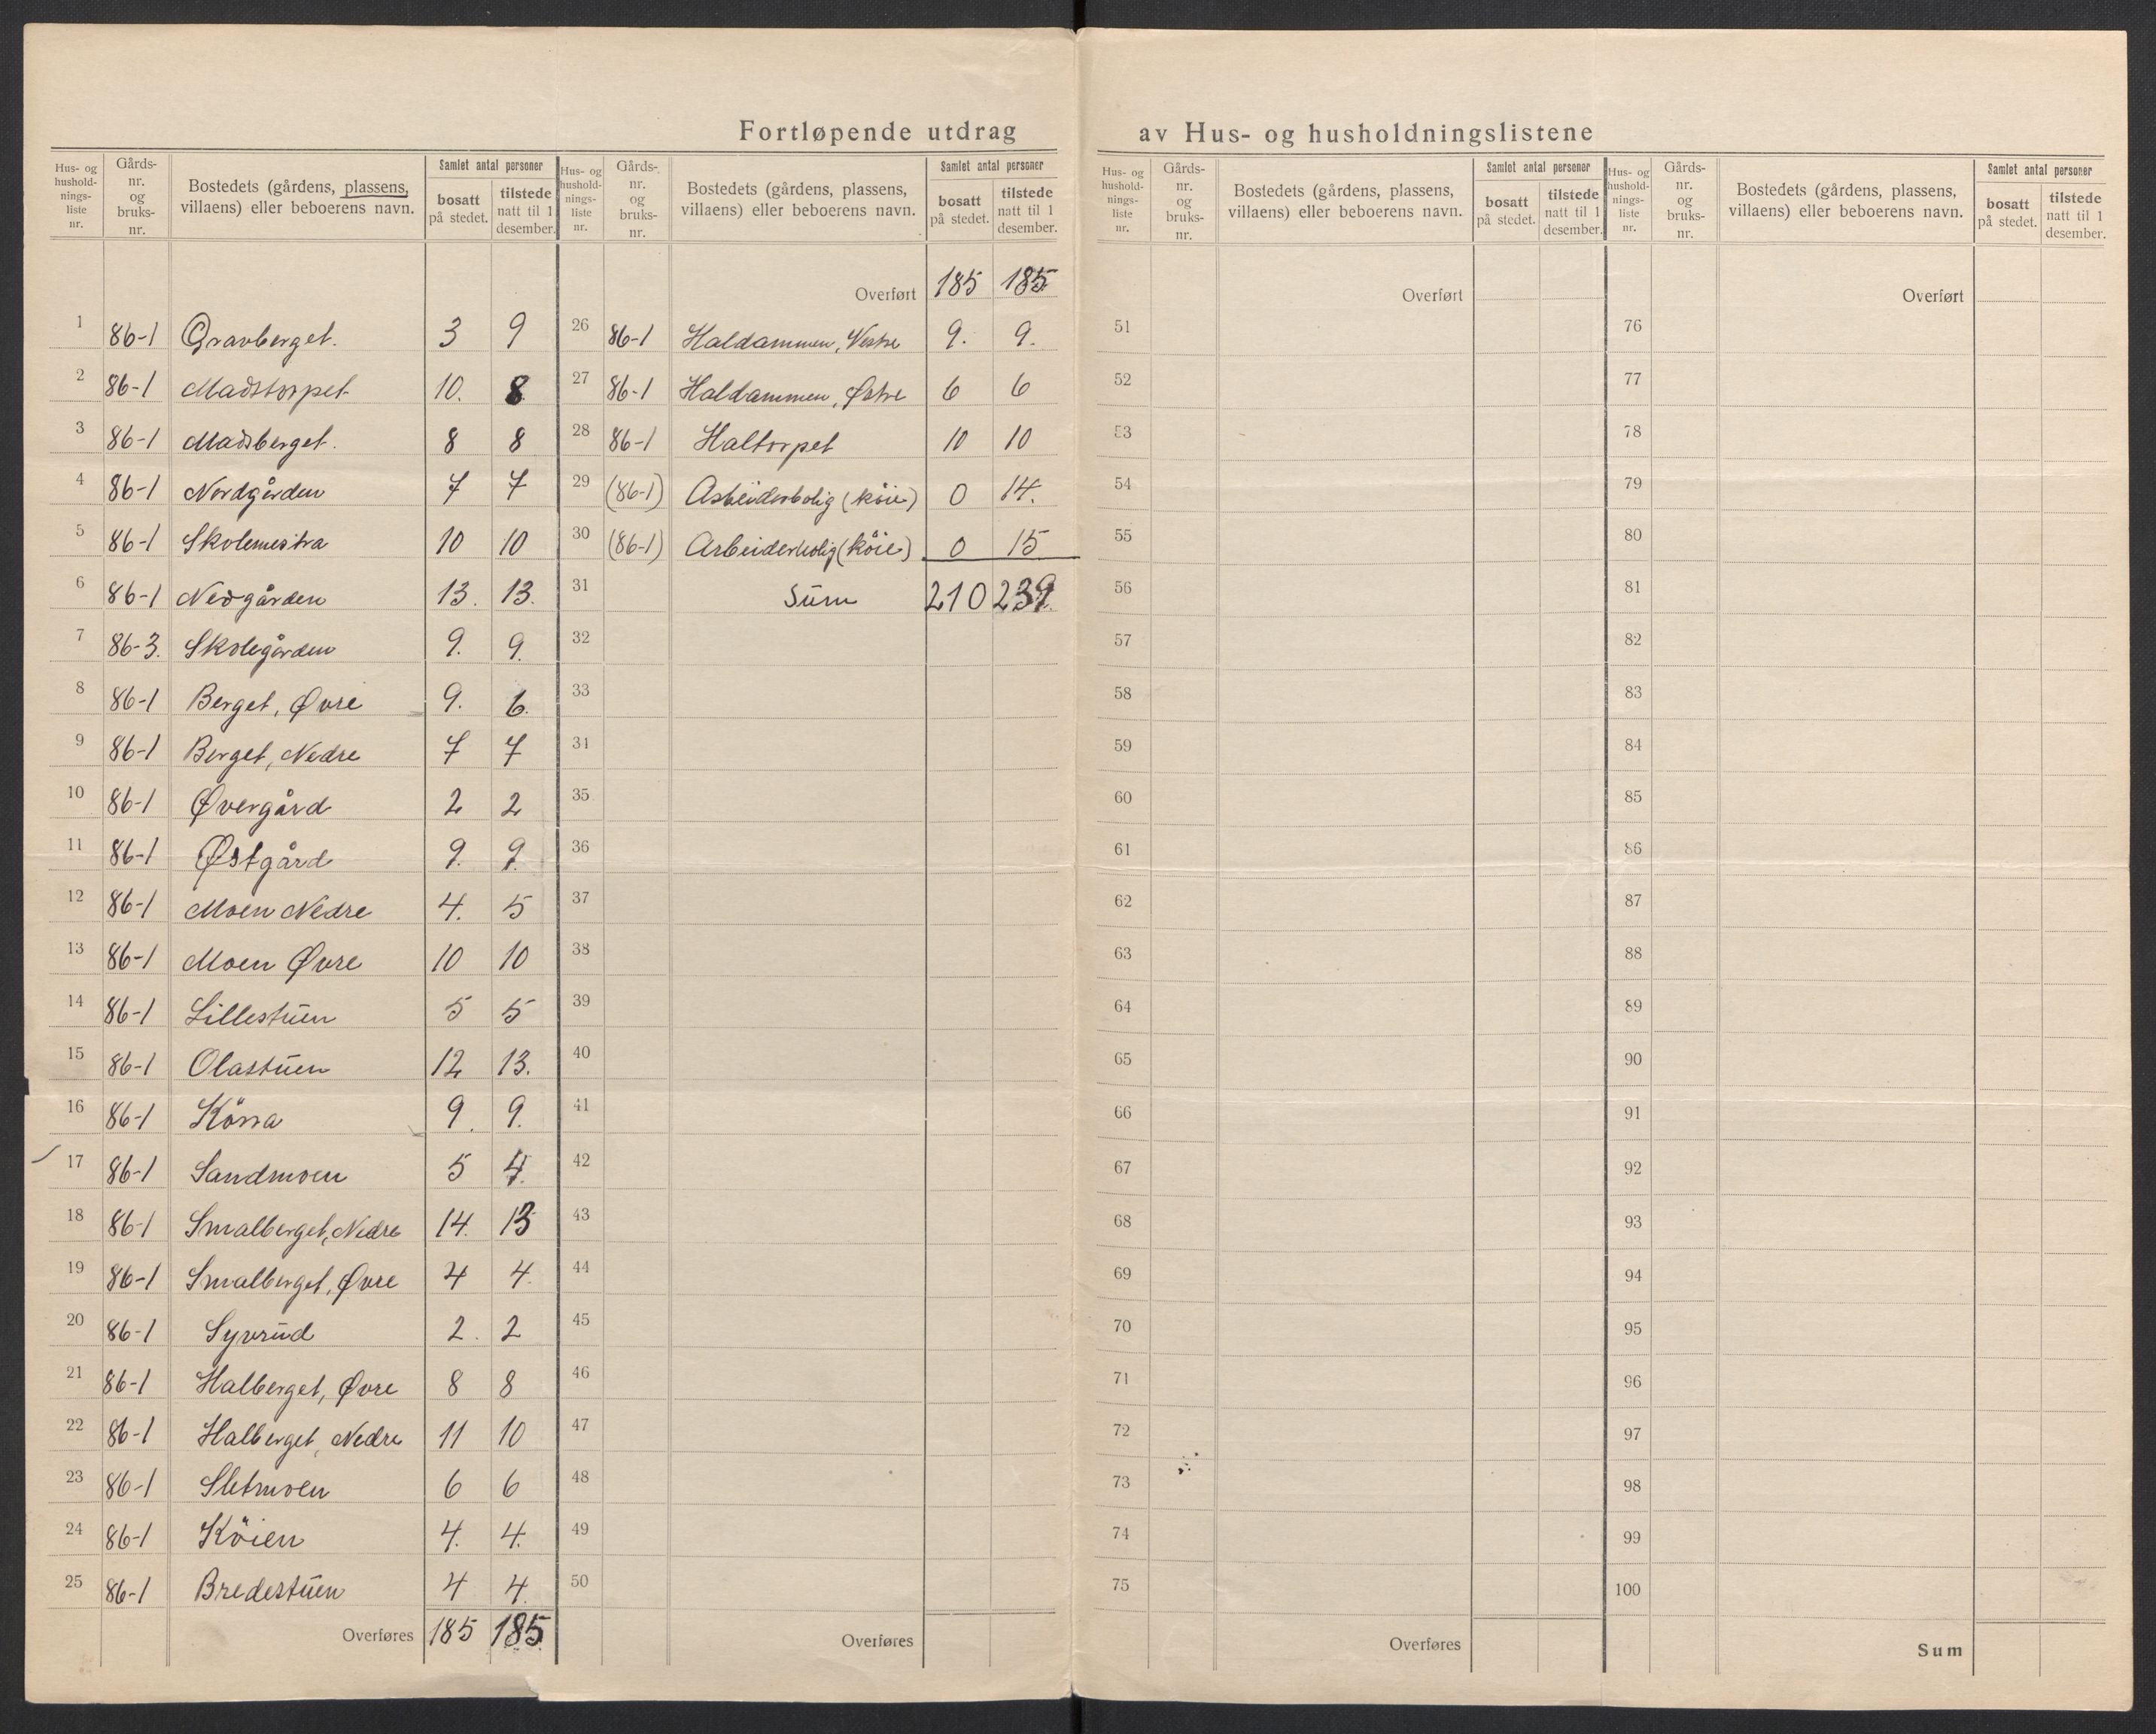 Fortløpende utdrag av Hus- og husholdningslistene
Hus- og hushold-nings-liste nr. Gårds-nr. og bruks-nr. Bostedets (gårdens, plassens, villaens) eller beboerens navn. Samlet antal personer bosatt på stedet. tilstede natt til 1 desember.
1 86-1 Gravberget. 3 9
2 86-1 Madstorpet 10. 8
3 86-1 Madsberget. 8 8
4 86-1 Nordgården 7 7
5 86-1 Skolemestra 10 10
6 86-1 Nedgården 13. 13.
7 86-3. Skolegården 9. 9.
8 86-1 Berget, Øvre 9. 6.
9 86-1 Berget, Nedre 7 7
10 86-1 Øvergård 2 2
11 86-1 Østgård 9. 9.
12 86-1 Moen Nedre 4. 5
13 86-1 Moen Øvre 10 10
14 86-1 Lillestuen 5 5
15 86-1 Olastuen 12 13.
16 86-1 9. 9.
17 86-1 Sandmoen 5 4.
18 86-1 Smalberget, Nedre 14. 13
19 86-1 Smalberget, Øvre 4 4.
20 86-1 Syvrud 2. 2
21 86-1 Halberget, Øvre 8 8
22 86-1 Halberget, Nedre 11 10
23 86-1 Sletmoen 6 6
24 86-1 Köien 4. 4.
25 86-1 Bredestuen 4 4.
Overføres 185 185
Hus- og hushold-nings-liste nr. Gårds-nr. og bruks-nr. Bostedets (gårdens, plassens, villaens) eller beboerens navn. Samlet antal personer bosatt på stedet. tilstede natt til 1 desember.
Overført 185 185.
26 86-1 Haldammen, Vestre 9. 9.
27 86-1 Haldammen, Østre 6 6
28 86-1 Haltorpet 10 10
29 (86-1) Arbeiderbolig (köie) 0 14.
30 (86-1) Arbeiderbolig (köie) 0 15
31 Sum 210 239.
32
33
34
35
36
37
38
39
40
41
42
43
44
45
46
47
48
49
50
Overføres
Hus- og hushold-nings-liste nr. Gårds-nr. og bruks-nr. Bostedets (gårdens, plassens, villaens) eller beboerens navn. Samlet antal personer bosatt på stedet. tilstede natt til 1 desember.
Overført
51
52
53
54
55
56
57
58
59
60
61
62
63
64
65
66
67
68
69
70
71
72
73
74
75
Overføres
Hus- og hushold-nings-liste nr. Gårds-nr. og bruks-nr. Bostedets (gårdens, plassens, villaens) eller beboerens navn. Samlet antal personer bosatt på stedet. tilstede natt til 1 desember.
Overført
76
77
78
79
80
81
82
83
84
85
86
87
88
89
90
91
92
93
94
95
96
97
98
99
100
Sum